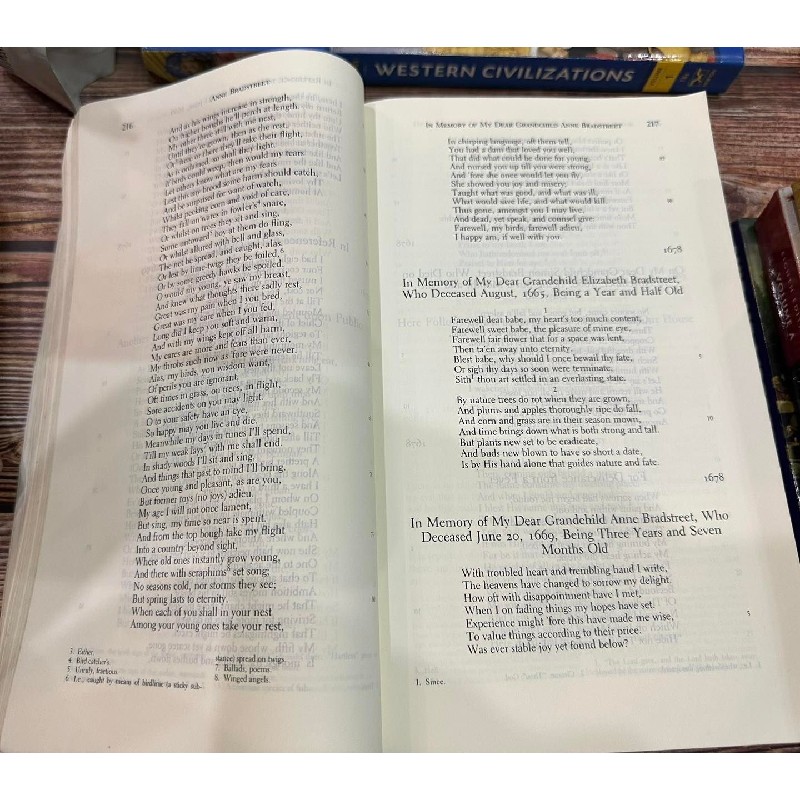 WESTERN CIVILIZATIONS
216
ANNE BRADSTREET
And as his wings increase in strength,
On higher boughs he'll perch at length.
My other three still with me nest,
Until they're grown, then as the rest,
Or here or there they'll take their flight,
As is ordained, so shall they light.
If birds could weep, then would my tears
Let others know what are my fears
Lest this my brood some harm should catch,
And be surprised for want of watch,
Whilst pecking corn and void of care,
They fall un'wares in fowler's⁴ snare,
Or whilst on trees they sit and sing,
Some untoward⁵ boy at them do fling,
Or whilst allured with bell and glass,
The net be spread, and caught, alas.
Or lest by lime-twigs they be foiled,⁶
Or by some greedy hawks be spoiled.
O would my young, ye saw my breast,
And knew what thoughts there sadly rest,
Great was my pain when I you bred,
Great was my care when I you fed,
Long did I keep you soft and warm,
And with my wings kept off all harm,
My cares are more and fears than ever,
My throbs such now as 'fore were never.
Alas, my birds, you wisdom want,
Of perils you are ignorant,
Oft times in grass, on trees, in flight,
Sore accidents on you may light.
O to your safety have an eye,
So happy may you live and die.
Meanwhile my days in tunes I'll spend,
Till my weak lays⁷ with me shall end.
In shady woods I'll sit and sing,
And things that past to mind I'll bring.
Once young and pleasant, as are you,
But former toys (no joys) adieu.
My age I will not once lament,
But sing, my time so near is spent.
And from the top bough take my flight
Into a country beyond sight,
Where old ones instantly grow young,
And there with seraphims⁸ set song;
No seasons cold, nor storms they see;
But spring lasts to eternity.
When each of you shall in your nest
Among your young ones take your rest,
3. Father.
4. Bird catcher's.
5. Unruly, fractious.
6. I.e., caught by means of birdlime (a sticky sub-
stance) spread on twigs.
7. Ballads, poems.
8. Winged angels.
IN MEMORY OF MY DEAR GRANDCHILD ANNE BRADSTREET
217
In chirping language, oft them tell,
You had a dam that loved you well,
That did what could be done for young,
And nursed you up till you were strong,
And 'fore she once would let you fly,
She showed you joy and misery;
Taught what was good, and what was ill,
What would save life, and what would kill.
Thus gone, amongst you I may live,
And dead, yet speak, and counsel give:
Farewell, my birds, farewell adieu,
I happy am, if well with you.
1678
In Memory of My Dear Grandchild Elizabeth Bradstreet,
Who Deceased August, 1665, Being a Year and Half Old
1
Farewell dear babe, my heart's too much content,
Farewell sweet babe, the pleasure of mine eye,
Farewell fair flower that for a space was lent,
Then ta'en away unto eternity.
Blest babe, why should I once bewail thy fate,
5
Or sigh thy days so soon were terminate,
Sith¹ thou art settled in an everlasting state.
2
By nature trees do rot when they are grown,
And plums and apples thoroughly ripe do fall,
And corn and grass are in their season mown,
10
And time brings down what is both strong and tall.
But plants new set to be eradicate,
And buds new blown to have so short a date,
Is by His hand alone that guides nature and fate.
1678
In Memory of My Dear Grandchild Anne Bradstreet, Who
Deceased June 20, 1669, Being Three Years and Seven
Months Old
With troubled heart and trembling hand I write,
The heavens have changed to sorrow my delight.
How oft with disappointment have I met,
When I on fading things my hopes have set.
Experience might 'fore this have made me wise,
5
To value things according to their price.
Was ever stable joy yet found below?
1. Since.